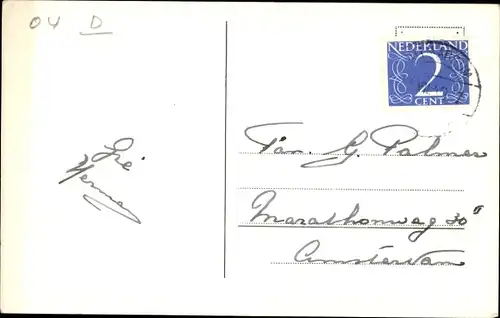 04 D
NEDERLAND
2
CENT
Fam. G. Palmer
Marathonweg 30 II
Amsterdam
Gré
Herman